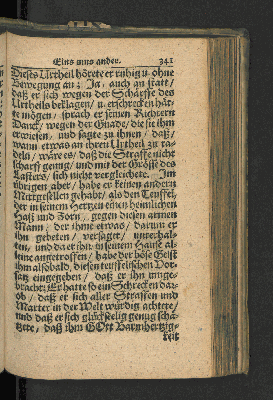 Eins ums ander. 341
Dieses Urtheil hörete er ruhig u. ohne
Bewegung an; Ja, auch an statt /
daß er sich wegen der Schärffe des
Urtheils beklagen / u. erschrecken hät-
te mögen / sprach er seinen Richtern
Danck / wegen der Gnade / die sie ihm
erwiesen / und sagte zu ihnen / daß /
wann etwas an ihren Urtheil zu ta-
deln / wäre es / daß die Straffe nicht
scharff genug / und mit der Grösse des
Lasters / sich nicht vergleichete. Im
übrigen aber / habe er keinen andern
Mitgesellen gehabt / als den Teuffel /
der in seinem Hertzen einen heimlichen
Haß und Zorn / gegen diesen armen
Mann / der ihme etwas / darum er
ihn gebeten / versaget / unterhal-
ten / und da er ihn in seinem Hause al-
leine angetroffen / habe der böse Geist
ihm alsobald / diesen teuffelischen Vor-
satz eingegeben / daß er ihn umge-
bracht: Er hatte so ein Schrecken dar-
ob / daß er sich aller Straffen und
Marter in der Welt würdig achtete /
und daß er sich glückseelig genug schä-
tzete, daß ihm GOtt Barmhertzig-
keit